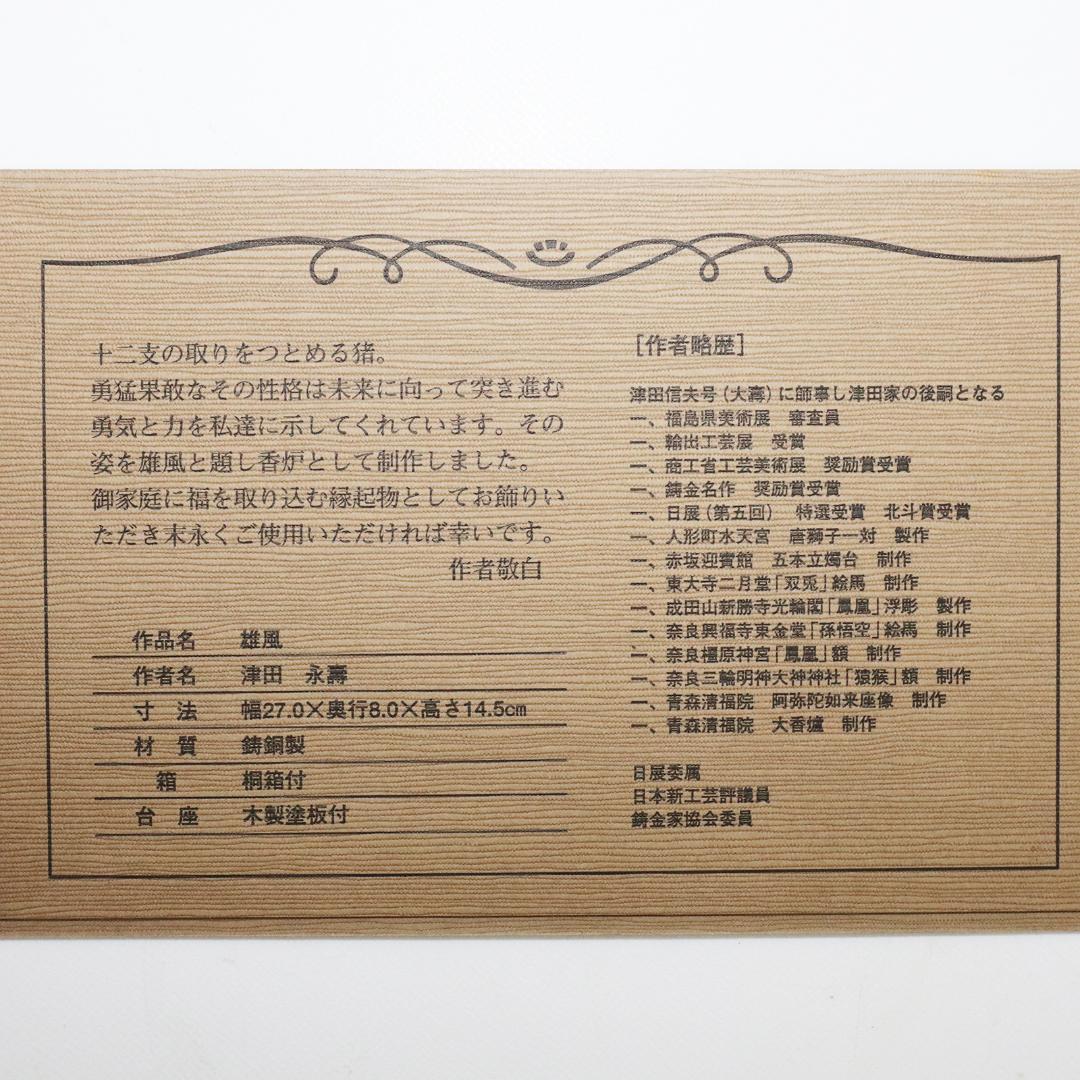 十二支の取りをつとめる猪。
勇猛果敢なその性格は未来に向って突き進む
勇気と力を私達に示してくれています。その
姿を雄風と題し香炉として制作しました。
御家庭に福を取り込む縁起物としてお飾りい
ただき末永くご使用いただければ幸いです。
作者敬白
作品名 雄風
作者名 津田 永壽
寸法 幅27.0×奥行8.0×高さ14.5cm
材質 鋳銅製
箱 桐箱付
台座 木製塗板付
[作者略歴]
津田信夫号(大壽)に師事し津田家の後嗣となる
一、福島県美術展 審査員
一、輸出工芸展 受賞
一、商工省工芸美術展 奨励賞受賞
一、鋳金名作 奨励賞受賞
一、日展(第五回) 特選受賞 北斗賞受賞
一、人形町水天宮 唐獅子一対 製作
一、赤坂迎賓館 五本立燭台 制作
一、東大寺二月堂「双兎」絵馬 制作
一、成田山新勝寺光輪閣「鳳凰」浮彫 製作
一、奈良興福寺東金堂「孫悟空」絵馬 制作
一、奈良橿原神宮「鳳凰」額 制作
一、奈良三輪明神大神神社「猿猴」額 制作
一、青森清福院 阿弥陀如来座像 制作
一、青森清福院 大香爐 制作
日展委属
日本新工芸評議員
鋳金家協会委員